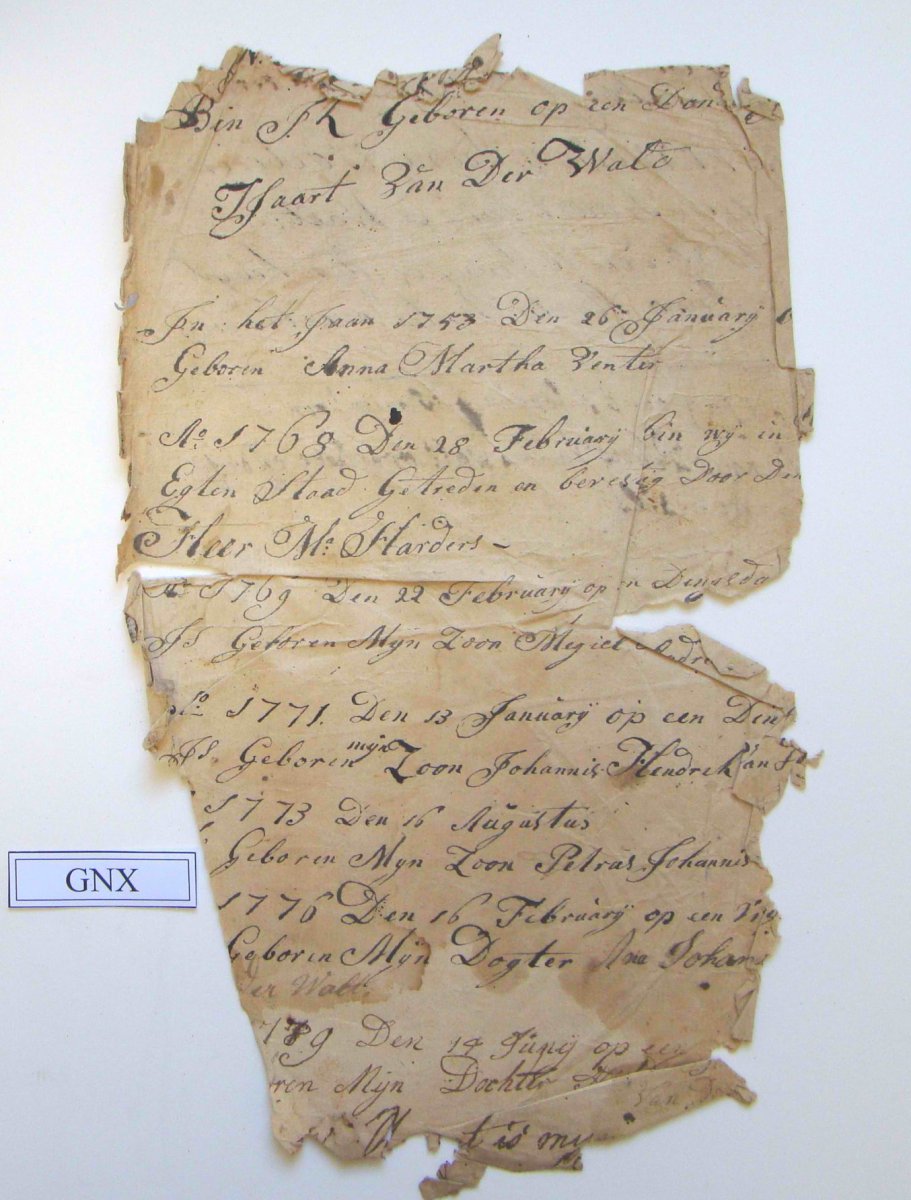 Bin Ik Geboren op een Don
Isaart Van Der Walt
In het Jaar 1753 Den 26 January
Geboren Anna Martha Venter
Ao 1768 Den 28 February bin wy in
Egten Staad Getreden en bevestig Door Den
Heer Mr Harders
Ao 1769 Den 22 February op en Dengsda
Is Geboren Myn Zoon Megiel Adr
Ao 1771. Den 13 January op een Dens
Is Geboren myn Zoon Johannis Hendrek Van
1773 Den 16 Augustus
Geboren Myn Zoon Petrus Johannis
1776 Den 16 February op een Vry
Geboren Myn Dogter Ana Johan
der Walt.
789 Den 14 Juny op een
ren Myn Dochter
Van
t is my
GNX